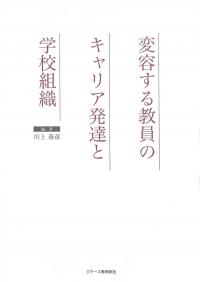 変容する教員の
キャリア発達と
学校組織
編著
川上 泰彦
ジアース教育新社